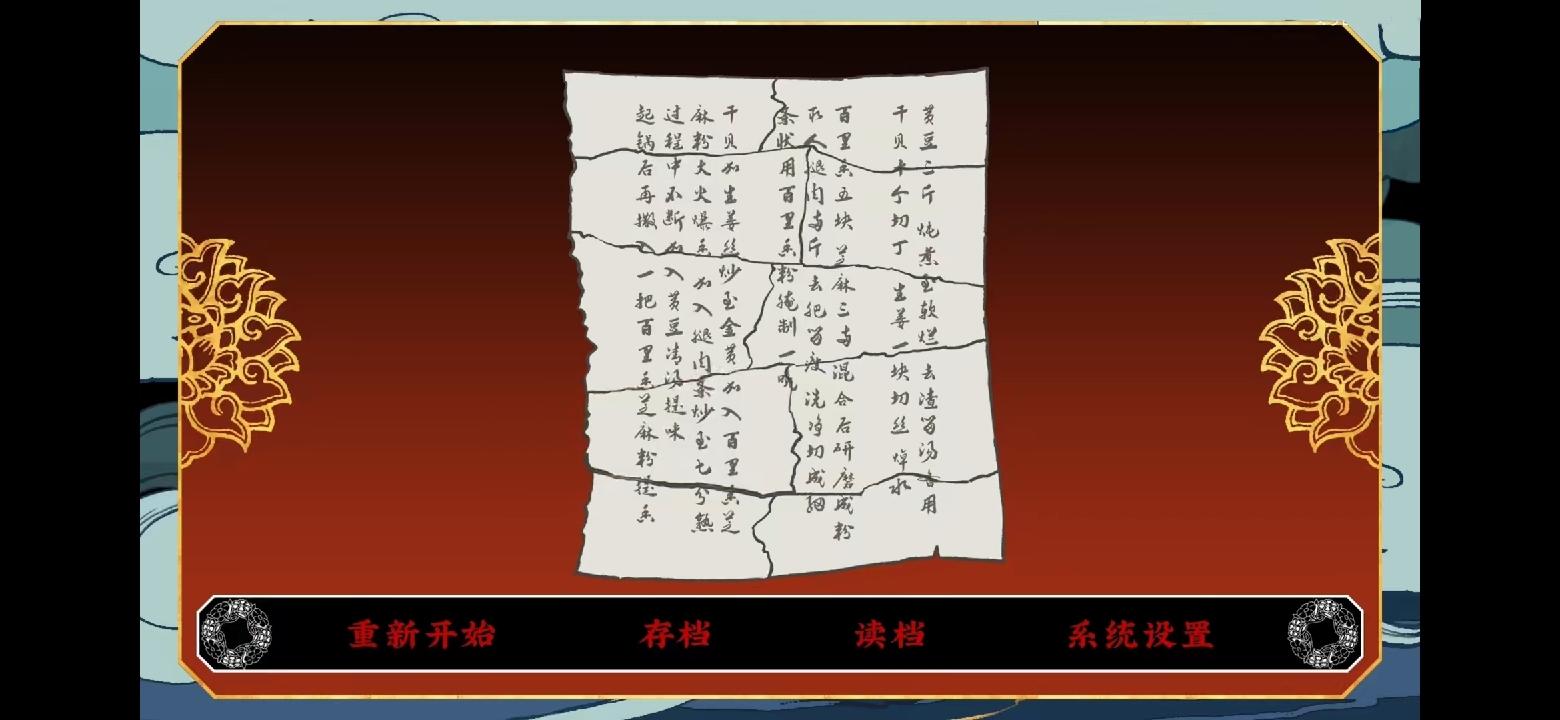 黄豆三斤 炖煮至软烂 去渣留汤备用
干贝十个切丁 生姜一块切丝焯水
百里香五块 芝麻三两混合后研磨成粉
取人腿肉两斤 去肥留瘦 洗净切成细
条状用百里香粉腌制一晚
干贝加生姜丝炒至金黄加入百里香芝
麻粉大火爆香 加入腿肉条炒至七分熟
过程中不断加入黄豆清汤提味
起锅后再撒入一把百里香芝麻粉提香
重新开始
存档
读档
系统设置